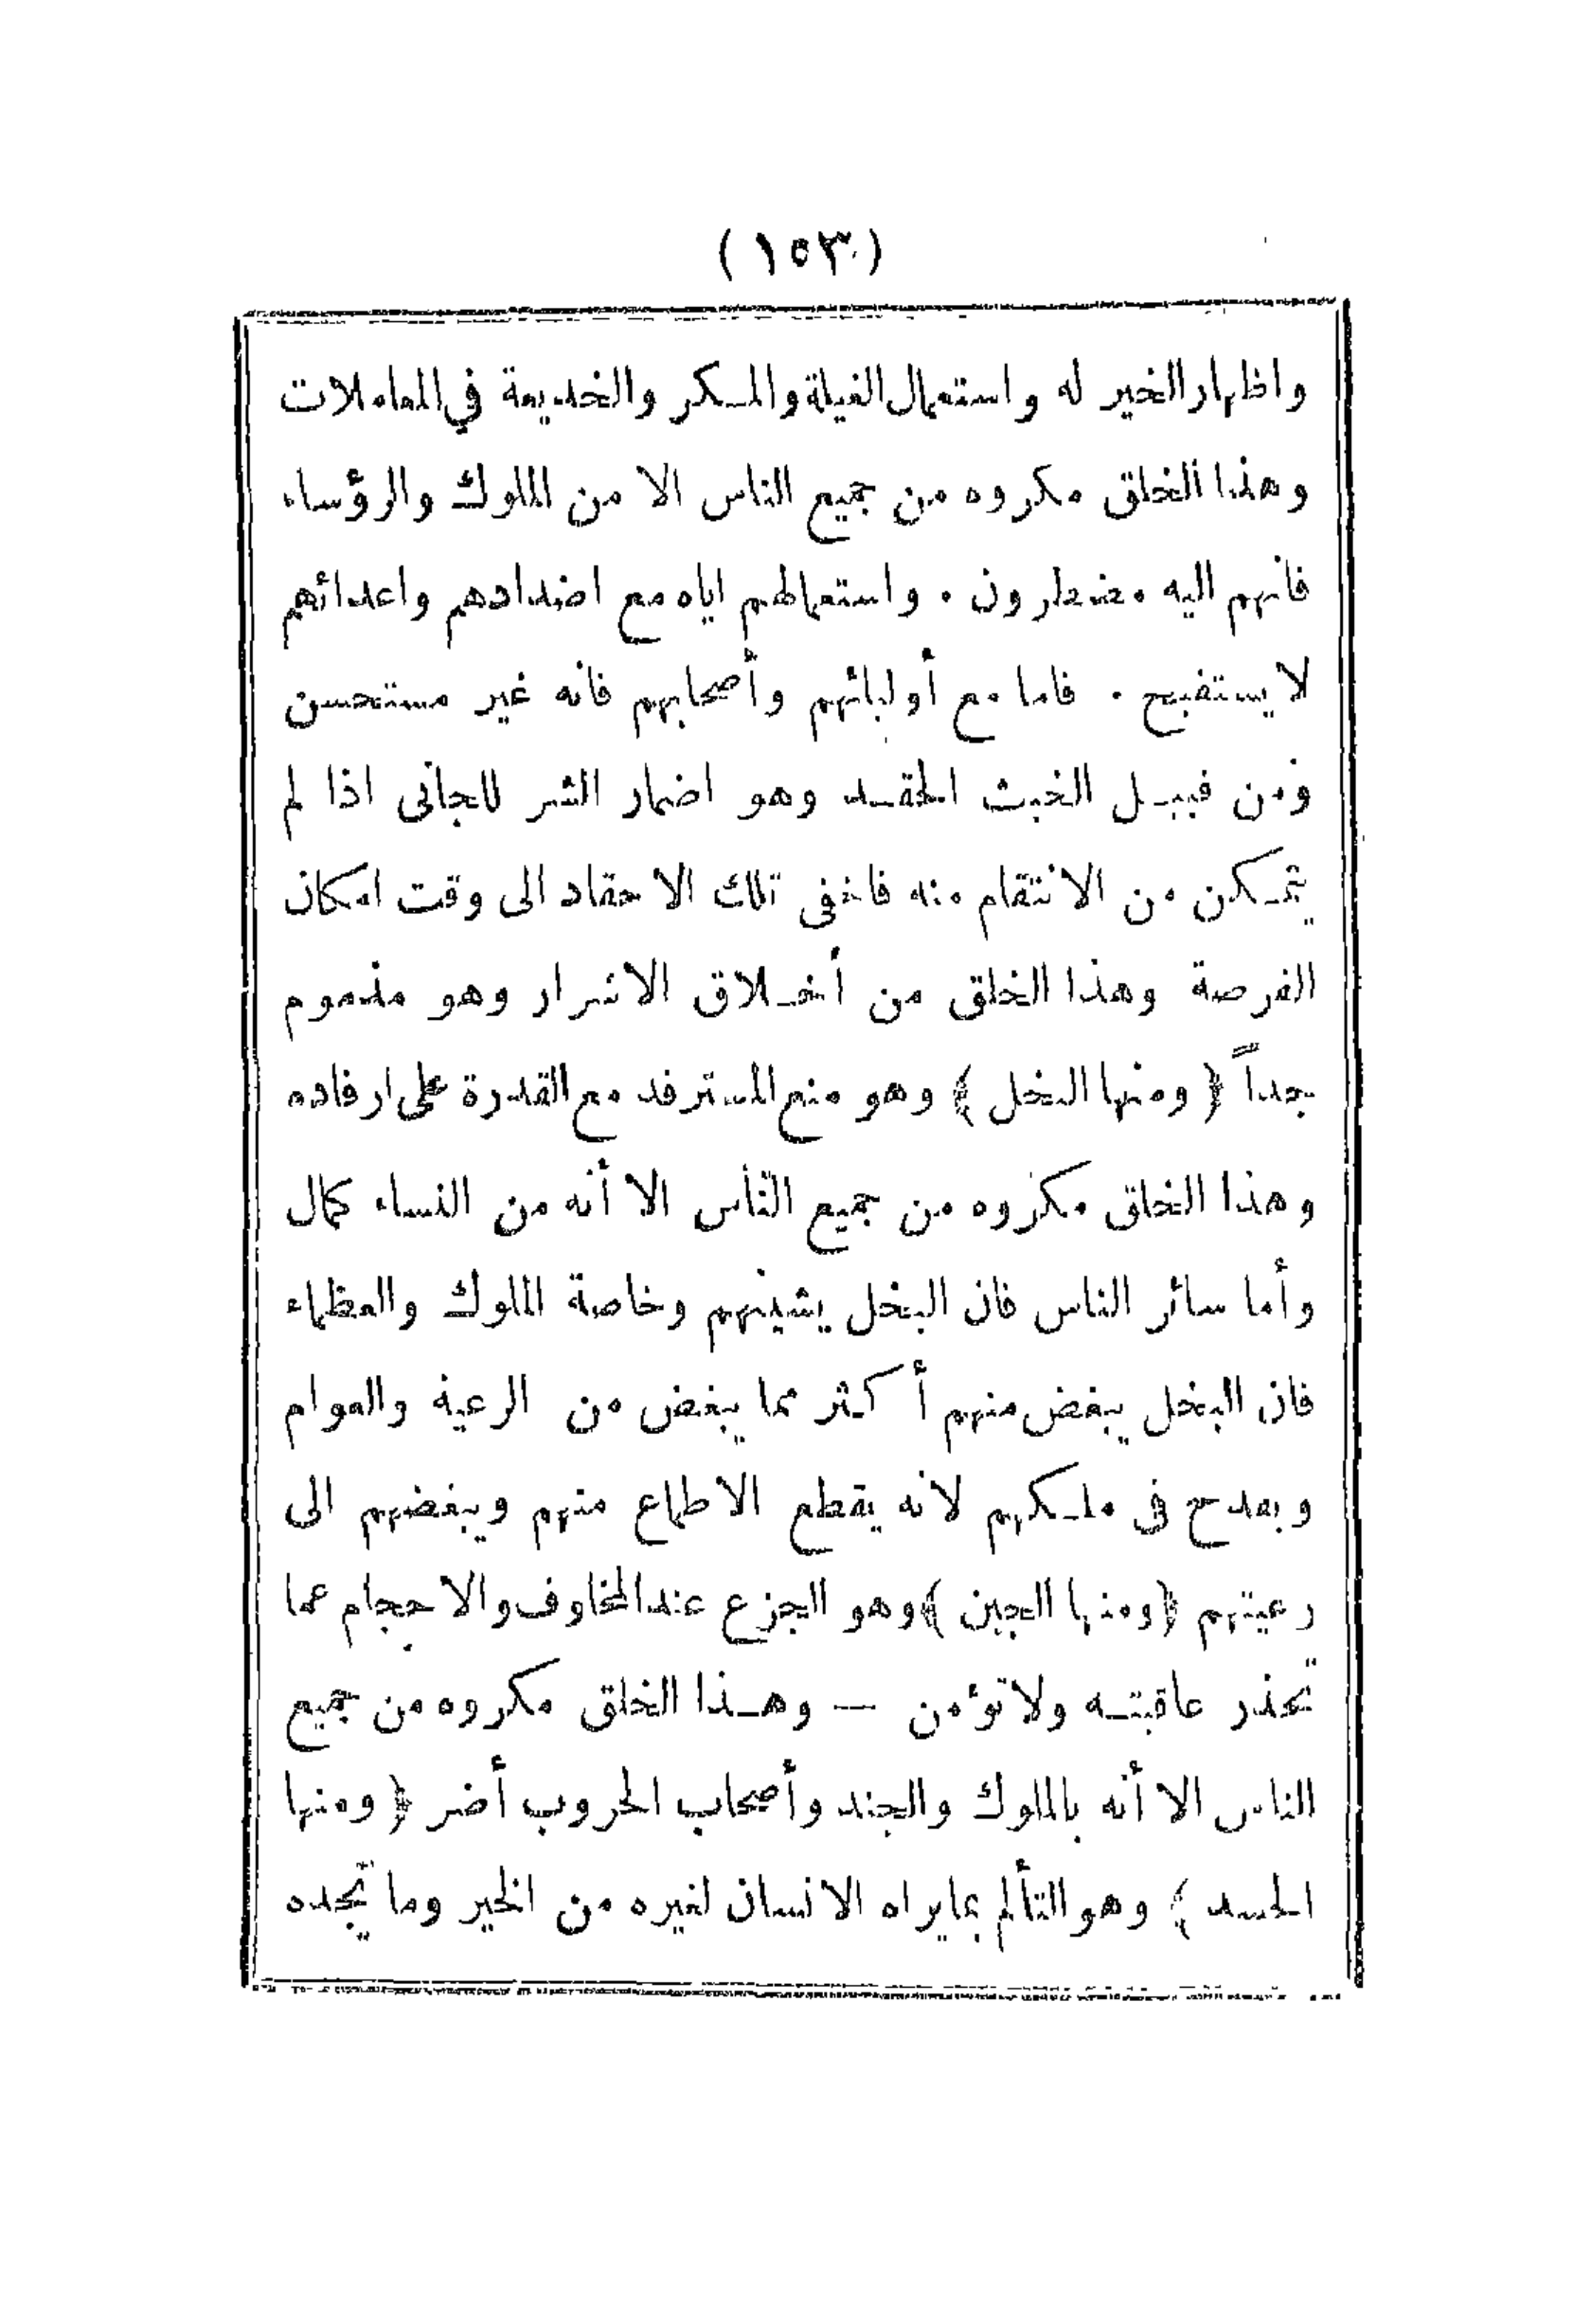 (١٥٣)
واظهار الخير له واستعمال الغيلة والمكر والخديعة في المعاملات
وهذا الخلق مكروه من جميع الناس الا من الملوك والرؤساء
فانهم اليه مضطرون . واستعمالهم اياه مع اضدادهم واعدائهم
لا يستقبح . فاما مع أوليائهم وأصحابهم فانه غير مستحسن
ومن قبيل الخبث الحقد وهو اضمار الشر للجانى اذا لم
يتمكن من الانتقام منه فاخفى تلك الاحقاد الى وقت امكان
الفرصة وهذا الخلق من أخلاق الاشرار وهو مذموم
جداً ﴿ ومنها البخل ﴾ وهو منع المسترفد مع القدرة على ارفاده
وهذا الخلق مكروه من جميع الناس الا أنه من النساء كمال
وأما سائر الناس فان البخل يشينهم وخاصة الملوك والعظماء
فان البخل يبغض منهم أكثر مما يبغض من الرعية والعوام
ويقدح فى ملكهم لانه يقطع الاطماع منهم ويبغضهم الى
رعيتهم ﴿ ومنها الجبن ﴾ وهو الجزع عند المخاوف والاحجام عما
تحذر عاقبته ولا تؤمن — وهذا الخلق مكروه من جميع
الناس الا أنه بالملوك والجند وأصحاب الحروب أضر ﴿ ومنها
الحسد ﴾ وهو التألم بما يراه الانسان لغيره من الخير وما تجده